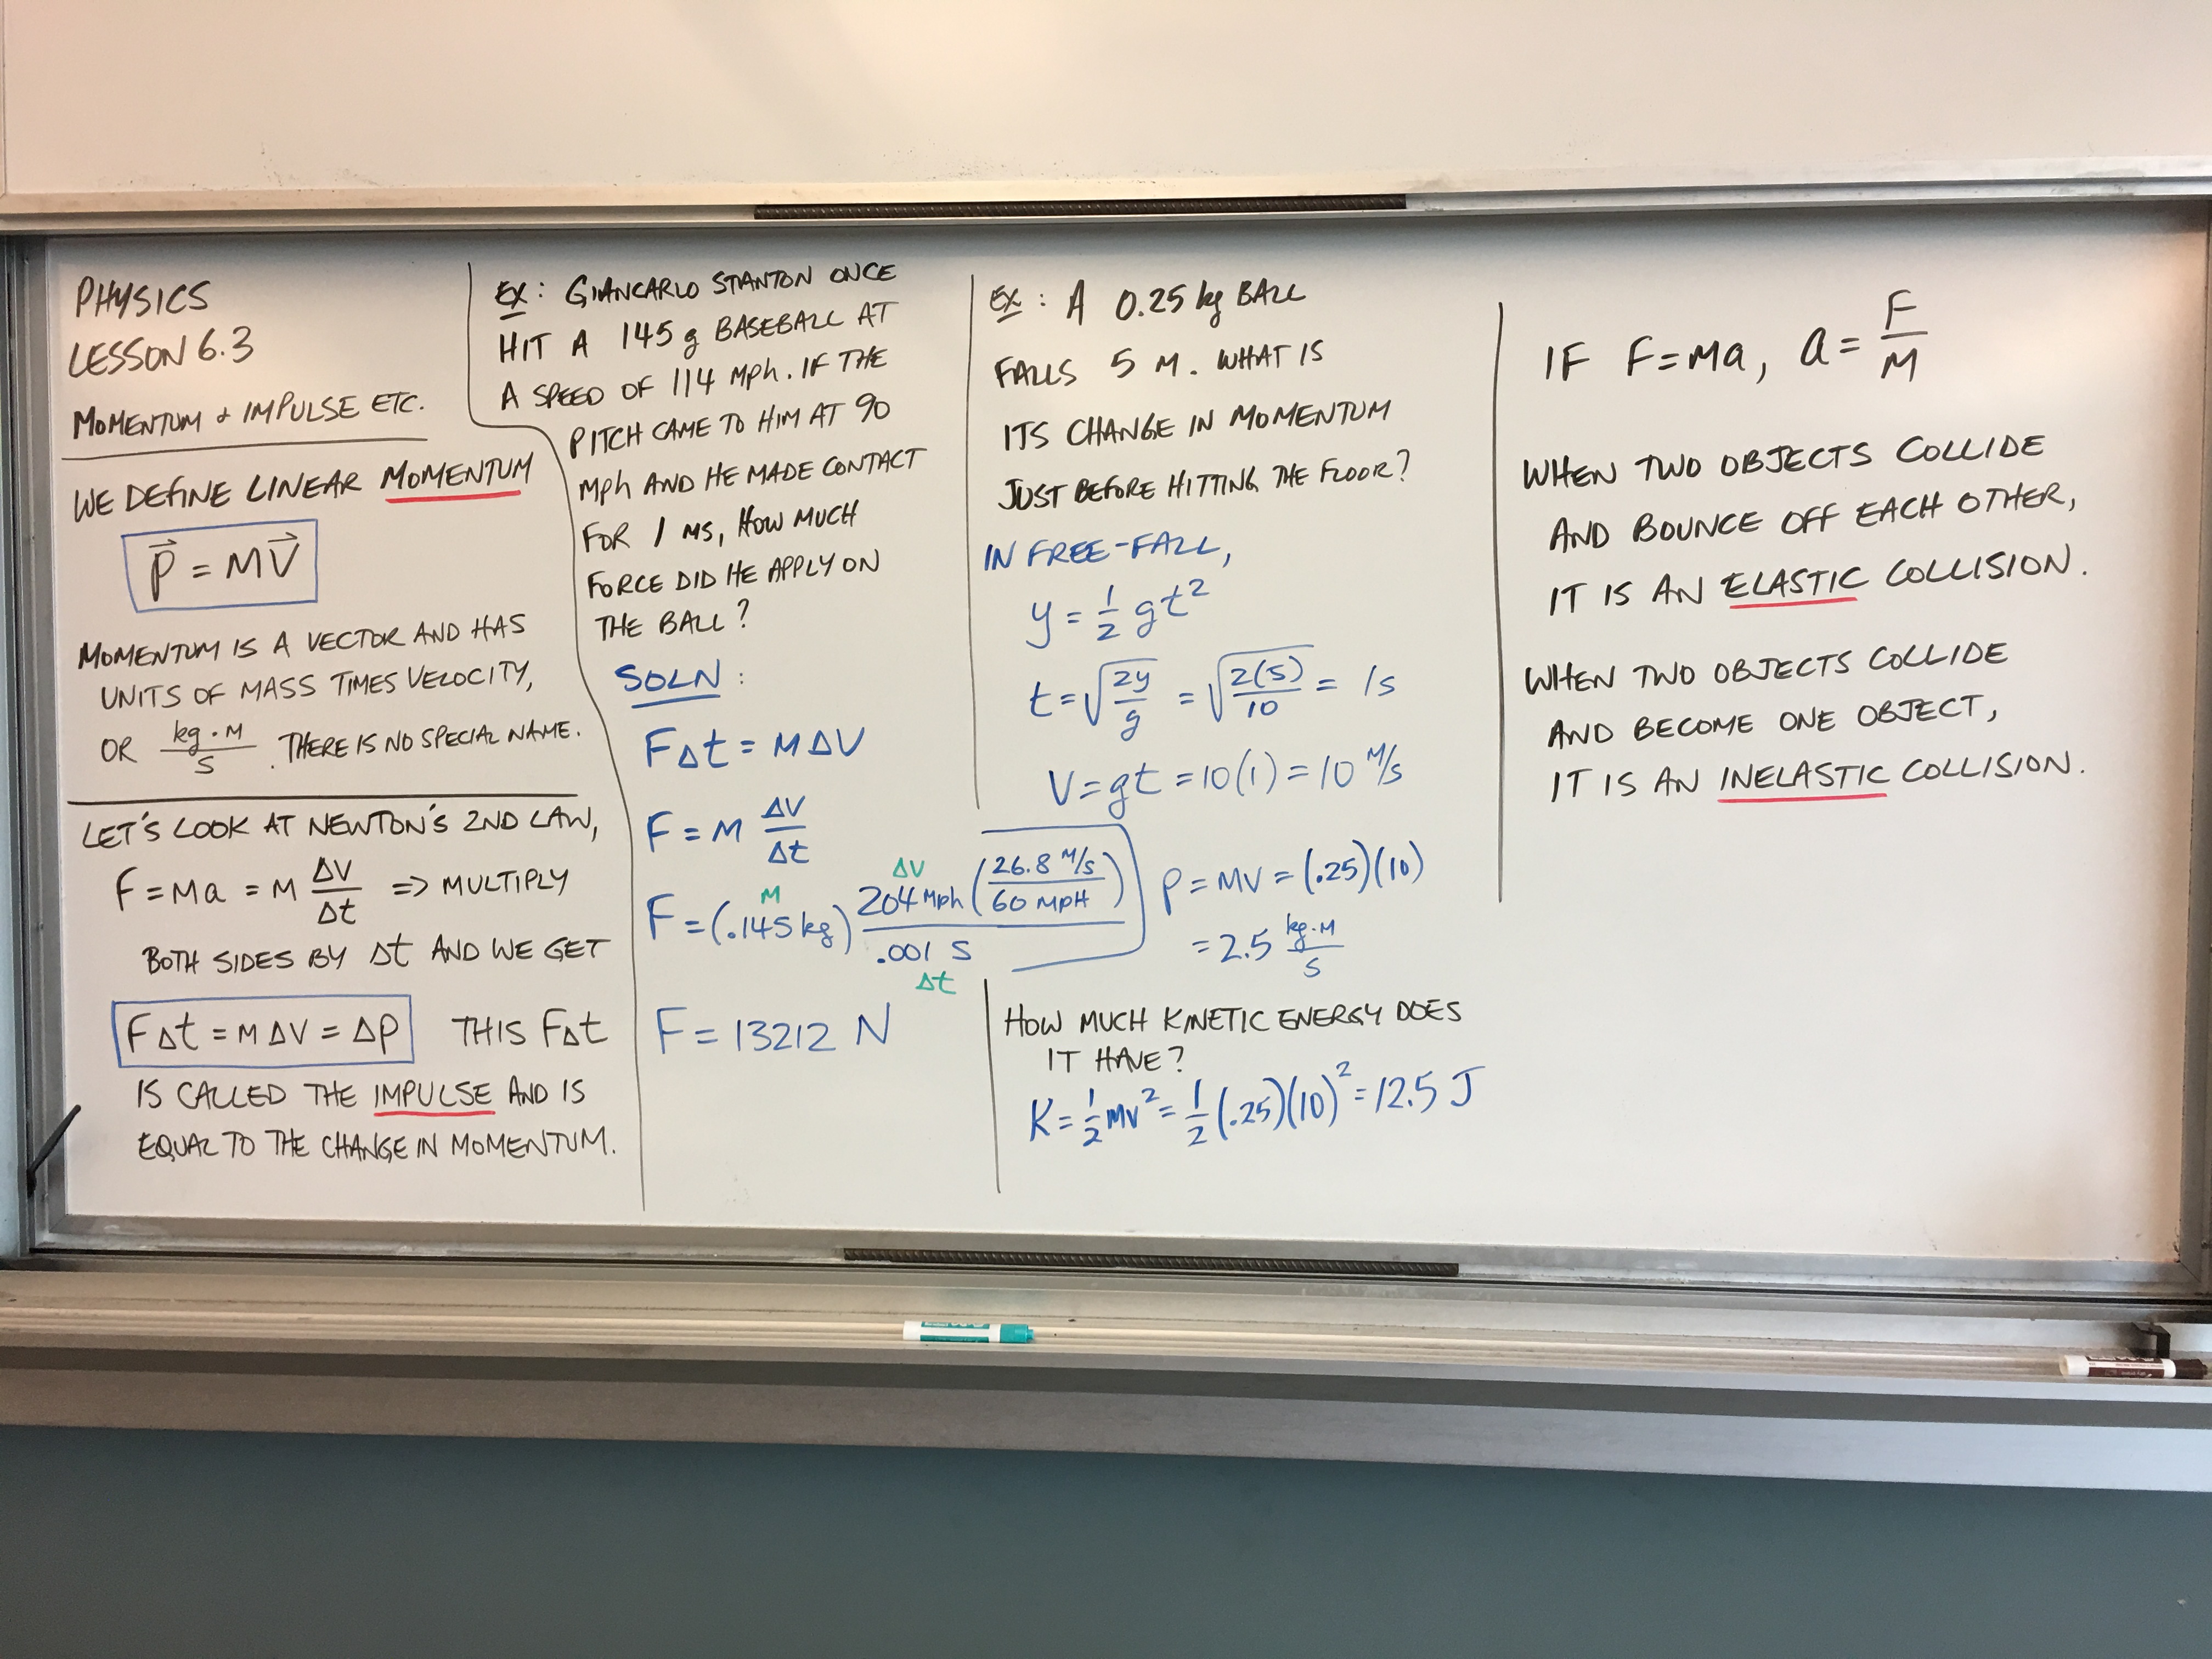 PHYSICS
LESSON 6.3
MOMENTUM & IMPULSE ETC.
WE DEFINE LINEAR MOMENTUM
p⃗ = Mv⃗
MOMENTUM IS A VECTOR AND HAS
UNITS OF MASS TIMES VELOCITY,
OR kg·M/S. THERE IS NO SPECIAL NAME.
LET'S LOOK AT NEWTON'S 2ND LAW,
F = Ma = M ΔV/Δt => MULTIPLY
BOTH SIDES BY Δt AND WE GET
FΔt = MΔV = Δp THIS FΔt
IS CALLED THE IMPULSE AND IS
EQUAL TO THE CHANGE IN MOMENTUM.
EX: GIANCARLO STANTON ONCE
HIT A 145 g BASEBALL AT
A SPEED OF 114 MPH. IF THE
PITCH CAME TO HIM AT 90
MPH AND HE MADE CONTACT
FOR 1 MS, HOW MUCH
FORCE DID HE APPLY ON
THE BALL?
SOLN:
FΔt = MΔV
F = M ΔV/Δt
M ΔV
F = (.145 kg) 204 MPH (26.8 M/S / 60 MPH) / .001 S
Δt
F = 13212 N
EX: A 0.25 kg BALL
FALLS 5 M. WHAT IS
ITS CHANGE IN MOMENTUM
JUST BEFORE HITTING THE FLOOR?
IN FREE-FALL,
y = 1/2 gt²
t = √(2y/g) = √(2(5)/10) = 1s
V = gt = 10(1) = 10 M/S
p = MV = (.25)(10)
= 2.5 kg·M/S
HOW MUCH KINETIC ENERGY DOES
IT HAVE?
K = 1/2 MV² = 1/2 (.25)(10)² = 12.5 J
IF F = Ma, a = F/M
WHEN TWO OBJECTS COLLIDE
AND BOUNCE OFF EACH OTHER,
IT IS AN ELASTIC COLLISION.
WHEN TWO OBJECTS COLLIDE
AND BECOME ONE OBJECT,
IT IS AN INELASTIC COLLISION.